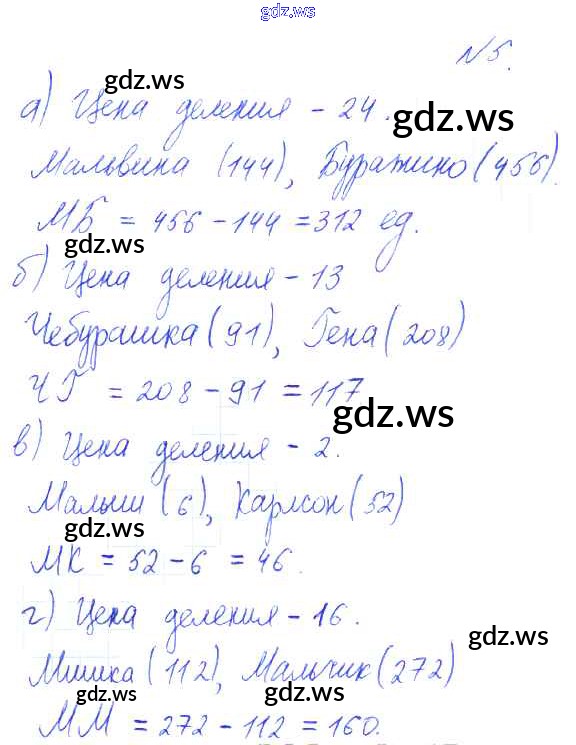 gdz.ws
N5.
gdz.ws
а) Цена деления - 24.
gdz.ws
Мальвина (144), Буратино (456).
МБ = 456 - 144 = 312 ед.
gdz.ws
б) Цена деления - 13
Чебурашка (91), Гена (208)
ЧГ = 208 - 91 = 117
gdz.ws
в) Цена деления - 2.
gdz.ws
Малыш (6), Карлсон (52)
gdz.ws
МК = 52 - 6 = 46.
г) Цена деления - 16.
gdz.ws
Мишка (112), Мальчик (272)
gdz.ws gdz.ws
ММ = 272 - 112 = 160.